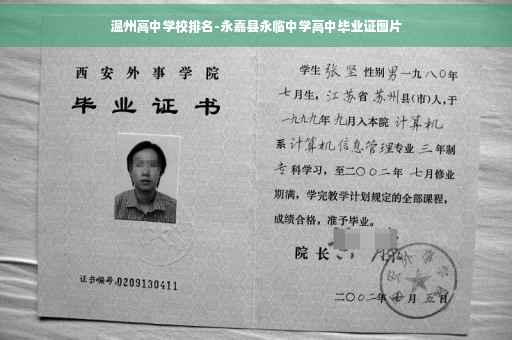 温州高中学校排名-永嘉县永临中学高中毕业证图片
西安外事学院
毕业证书
证书编号:0209130411
学生 张坚 性别 男 一九八〇年
七月生，江苏省 苏州县(市)人,于
一九九九年九月入本院 计算机
系 计算机信息管理专业 三年制
专科学习，至二〇〇二年 七月修业
期满，学完教学计划规定的全部课程，
成绩合格，准予毕业。
院长
二〇〇二年 月 五日